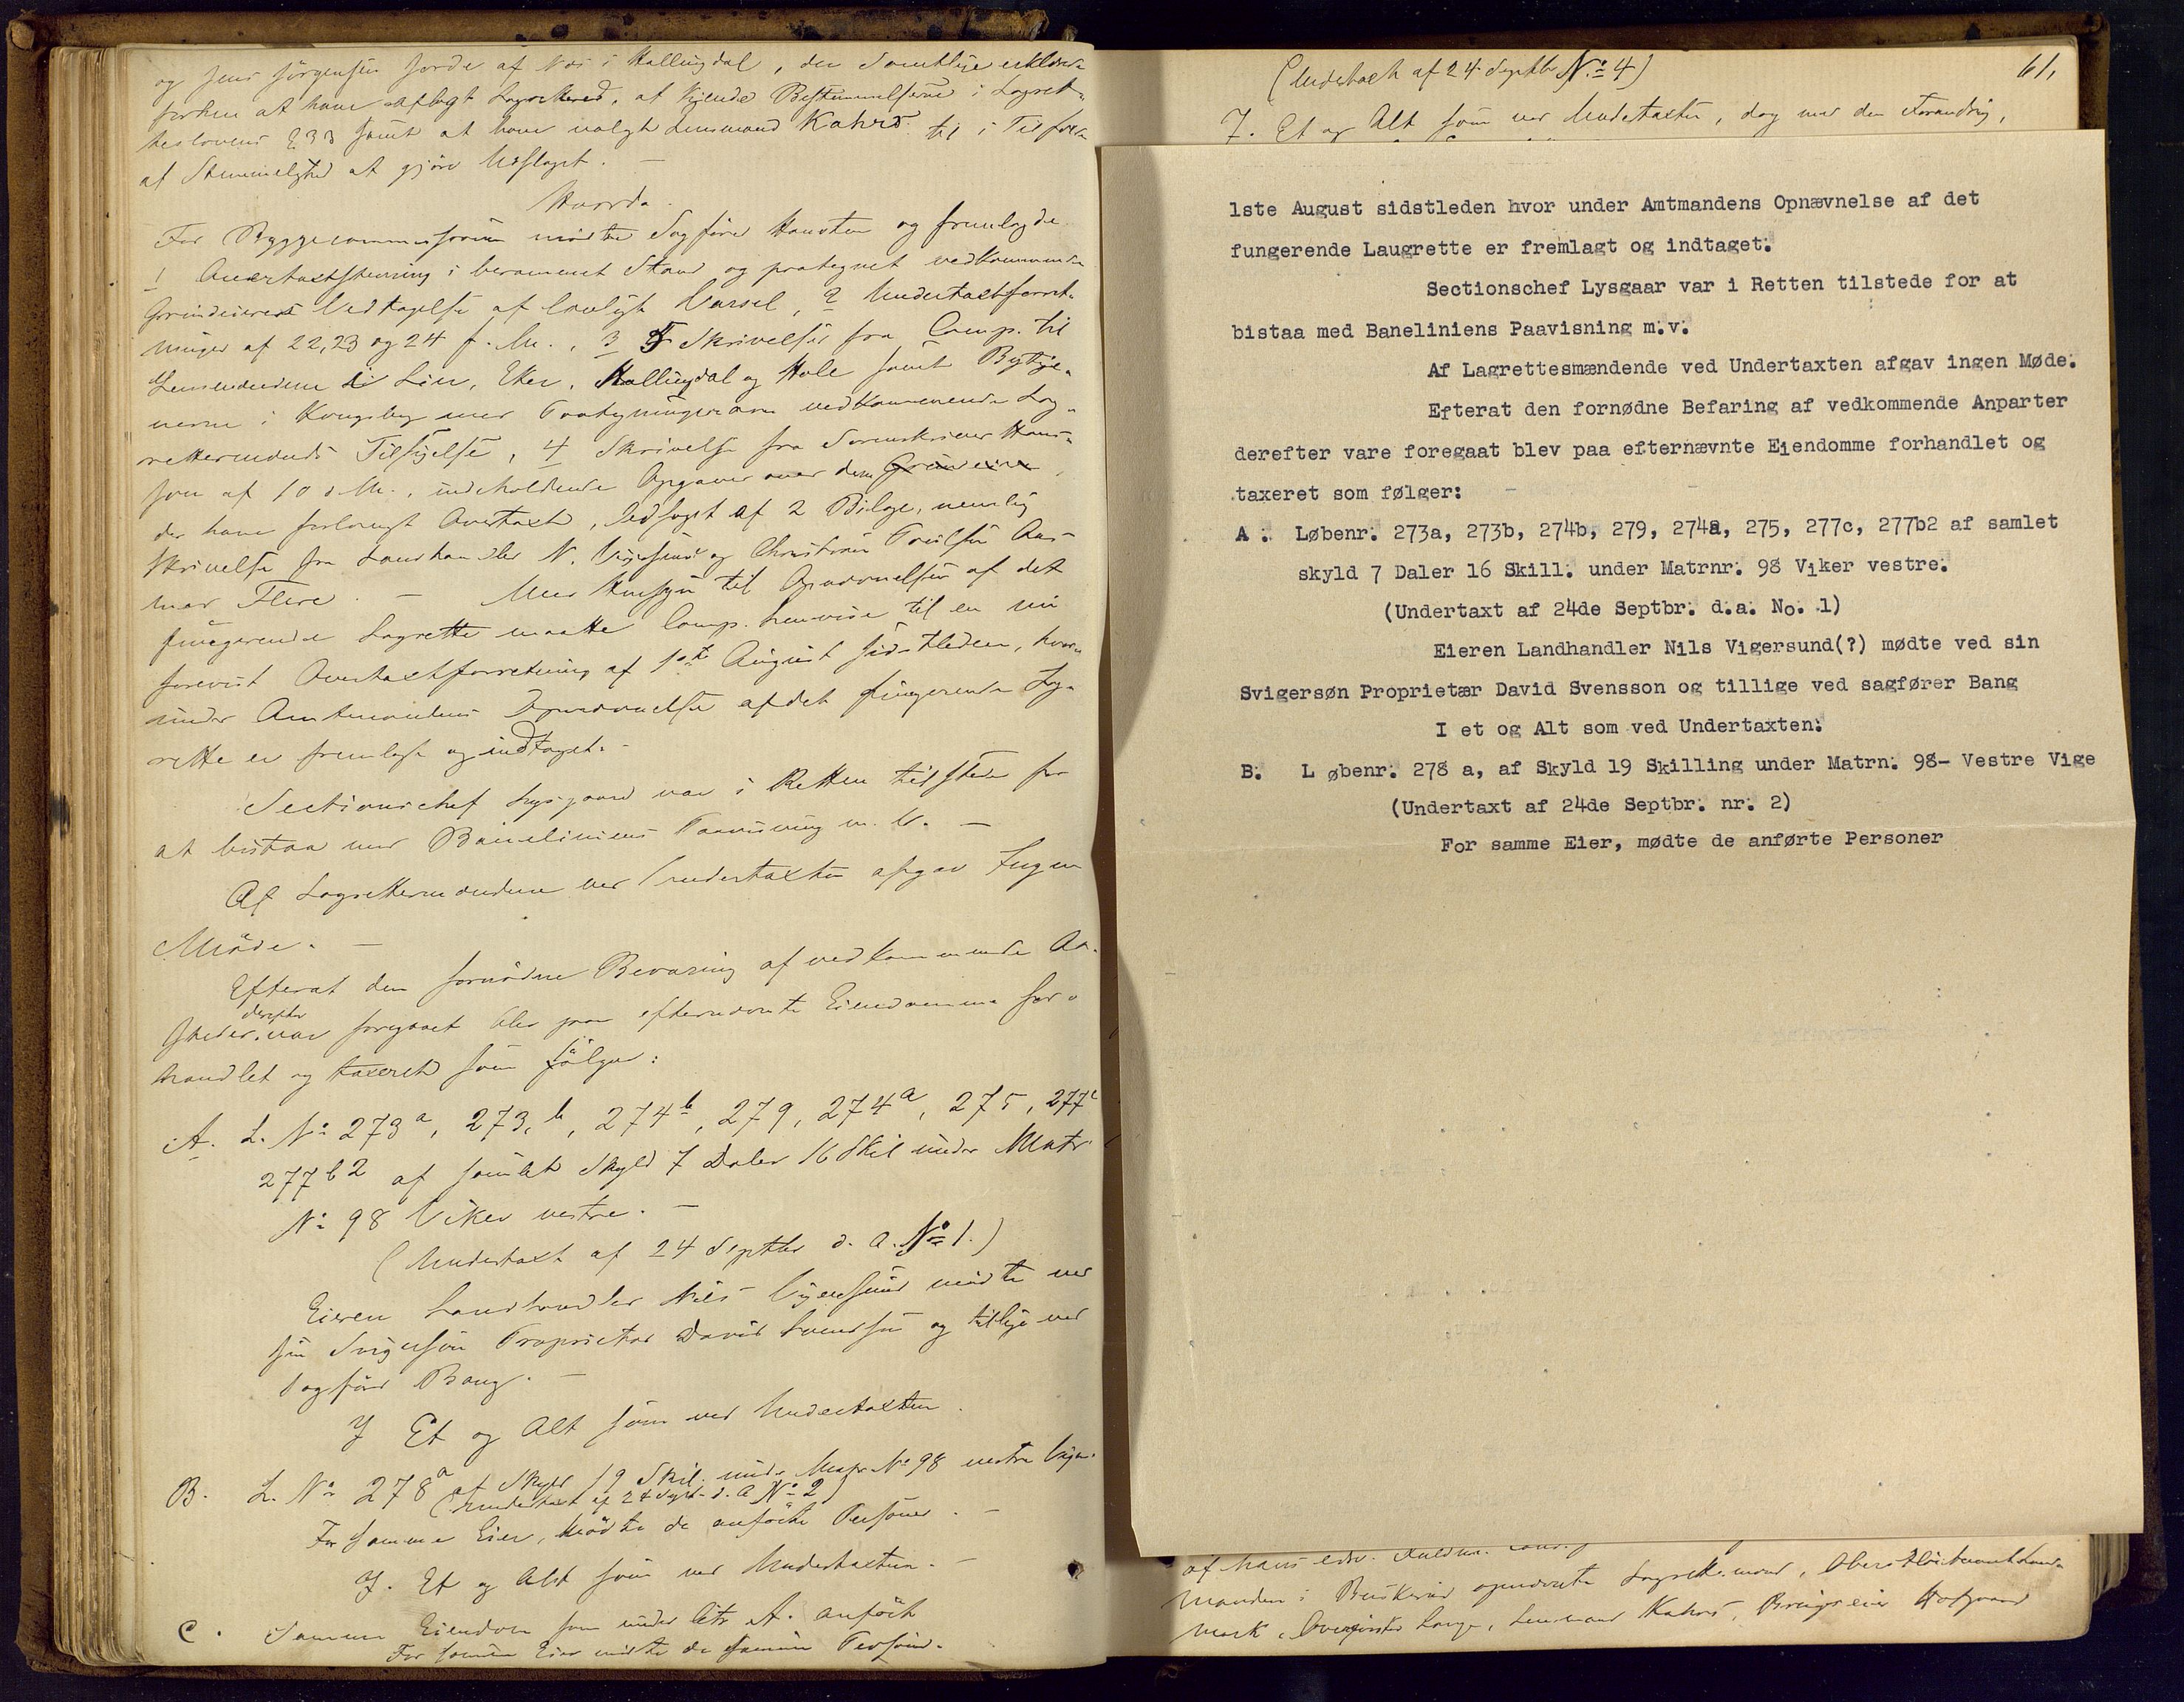 og Jens Jörgensen Jorde af Næs i Hallingdal, der Samtlige erklærede
forhen at have aflagt Lagretteed, at kjende Bestemmelserne i Lagret-
teslovens § 33 samt at have valgt Lensmand Kahrs til i Tilfælde
af Stemmelighed at gjøre Udslaget. —
Hvorda.
For Byggecommissionen mødte Sagfører Hansten og fremlagde
1 Overtaxtstevning i berammet Stand og paategnet vedkommende
Grundeieres Vedtagelse af lovligt Varsel, 2 Undertaxtforret-
ninger af 22, 23 og 24 f. M., 3 5 Skrivelser fra Comp. til
Lensmændene i Lier, Eker, Hallingdal og Hole samt Bytje-
nerne i Kongsberg med Paategninger om vedkommende Lag-
rettemænds Tilsigelse, 4 Skrivelse fra Sorenskriver Han-
sen af 10 d. M., indeholdende Opgaver over dem Grundeiere,
der have forlangt Overtaxt, ledsaget af 2 Bilage, nemlig
Skrivelse fra Landhandler N. Vigersund og Christian Poulsen Aas
med Flere. — Med Hensyn til Opnævnelsen af det
fungerende Lagrette maatte Comp. henvise til en nu
forevist Overtaxtforretning af 1ste August sidstleden, hvor
under Amtmandens Opnævnelse af det fungerende Lag-
rette er fremlagt og indtaget. -
Sectionschef Lysgaard var i Retten tilstede for
at bistaa med Baneliniens Paavisning m. V. —
Af Lagrettemændene ved Undertaxten afgav Ingen
Møde. —
Efterat den fornødne Befaring af vedkommende An-
parter derefter var foregaaet blev paa efternævnte Eiendomme for-
handlet og taxeret som følger:
A. L. No 273a, 273,b, 274b, 279, 274a, 275, 277c
277b2 af samlet Skyld 7 Daler 16 Skil under Matr
No 98 Viker vestre. —
(Undertaxt af 24 Septbr d. A. No 1.)
Eieren Landhandler Nils Vigersund mødte ved
sin Svigersøn Proprietær David Svensson og tillige ved
Sagfører Bang. —
I Et og Alt som ved Undertaxten.
B. L. No 278a af Skyld 19 Skil. under Matr No 98 vestre Vige.
(Undertaxt af 24 Sept. d. A No 2)
For samme Eier, mødte de anførte Personer. —
I. Et og Alt som ved Undertaxten. —
C. Samme Eiendom som under Litr A. anført
For samme Eier mødte de samme Personer.
61,
(Undertaxt af 24 Septbr No 4)
I. Et og Alt som ved Undertaxten, dog med den Forandring,
1ste August sidstleden hvor under Amtmandens Opnævnelse af det
fungerende Laugrette er fremlagt og indtaget.
Sectionschef Lysgaar var i Retten tilstede for at
bistaa med Baneliniens Paavisning m.v.
Af Lagrettesmændende ved Undertaxten afgav ingen Møde.
Efterat den fornødne Befaring af vedkommende Anparter
derefter vare foregaat blev paa efternævnte Eiendomme forhandlet og
taxeret som følger:
A. Løbenr. 273a, 273b, 274b, 279, 274a, 275, 277c, 277b2 af samlet
skyld 7 Daler 16 Skill. under Matrnr. 98 Viker vestre.
(Undertaxt af 24de Septbr. d.a. No. 1)
Eieren Landhandler Nils Vigersund(?) mødte ved sin
Svigersøn Proprietær David Svensson og tillige ved sagfører Bang
I et og Alt som ved Undertaxten.
B. L øbenr. 278 a, af Skyld 19 Skilling under Matrn. 98- Vestre Vige
(Undertaxt af 24de Septbr. nr. 2)
For samme Eier, mødte de anførte Personer
af hans
manden i Buskerud opnævnte Lagrettemænd, Oberstlieutenant Land-
mark, Lange, Lensmand Kahrs, Brugseier Hofgaard